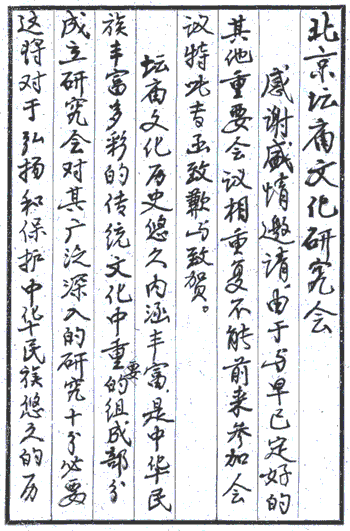 北京坛庙文化研究会
感谢盛情邀请,由于与早已定好的
其他重要会议相重复不能前来参加会
议特此专函致歉与致贺。
坛庙文化历史悠久内涵丰富,是中华民
族丰富多彩的传统文化中重要的组成部分
成立研究会对其广泛深入的研究十分必要
这将对于弘扬和保护中华民族悠久的历